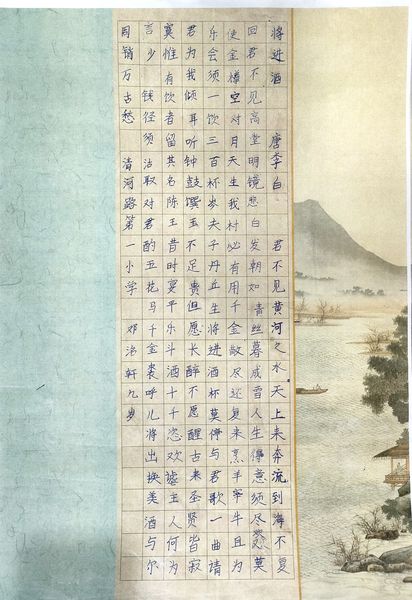 将进酒 唐 李白 君不见黄河之水天上来奔流到海不复
回君不见高堂明镜悲白发朝如青丝暮成雪人生得意须尽欢莫
使金樽空对月天生我村必有用千金散尽还复来烹羊宰牛且为
乐会须一饮三百杯岑夫子丹丘生将进酒杯莫停与君歌一曲请
君为我倾耳听钟鼓馔玉不足贵但愿长醉不愿醒古来圣贤皆寂
寞惟有饮者留其名陈王昔时宴平乐斗酒十千恣欢谑主人何为
言少钱径须沽取对君酌五花马千金裘呼儿将出换美酒与尔
同销万古愁 清河路第一小学 邓洛轩九岁